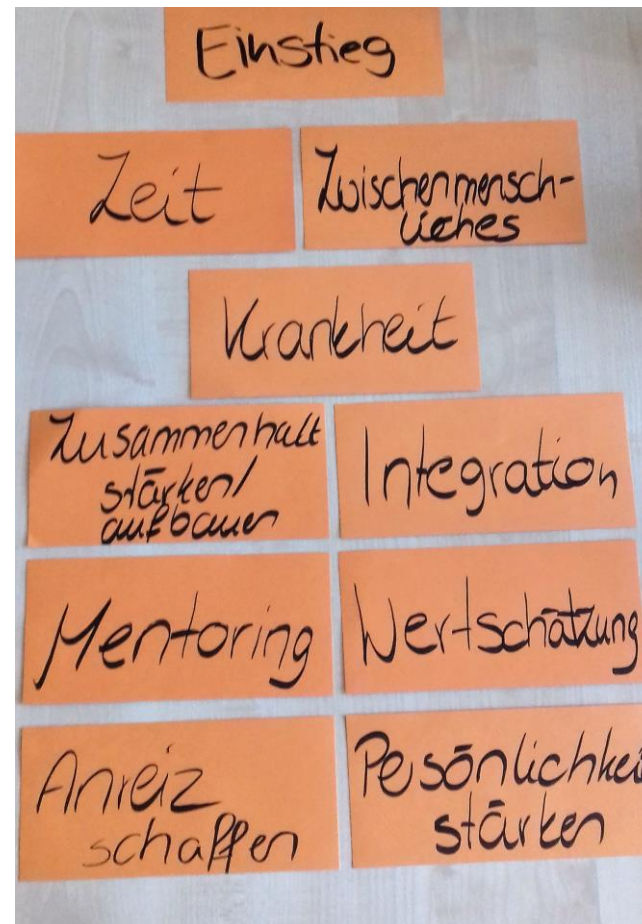 Einstieg
Zeit
Zwischenmensch-
liches
Krankheit
Zusammenhalt
stärken/
aufbauen
Integration
Mentoring
Wertschätzung
Anreiz
schaffen
Pesönlichkei
stärken